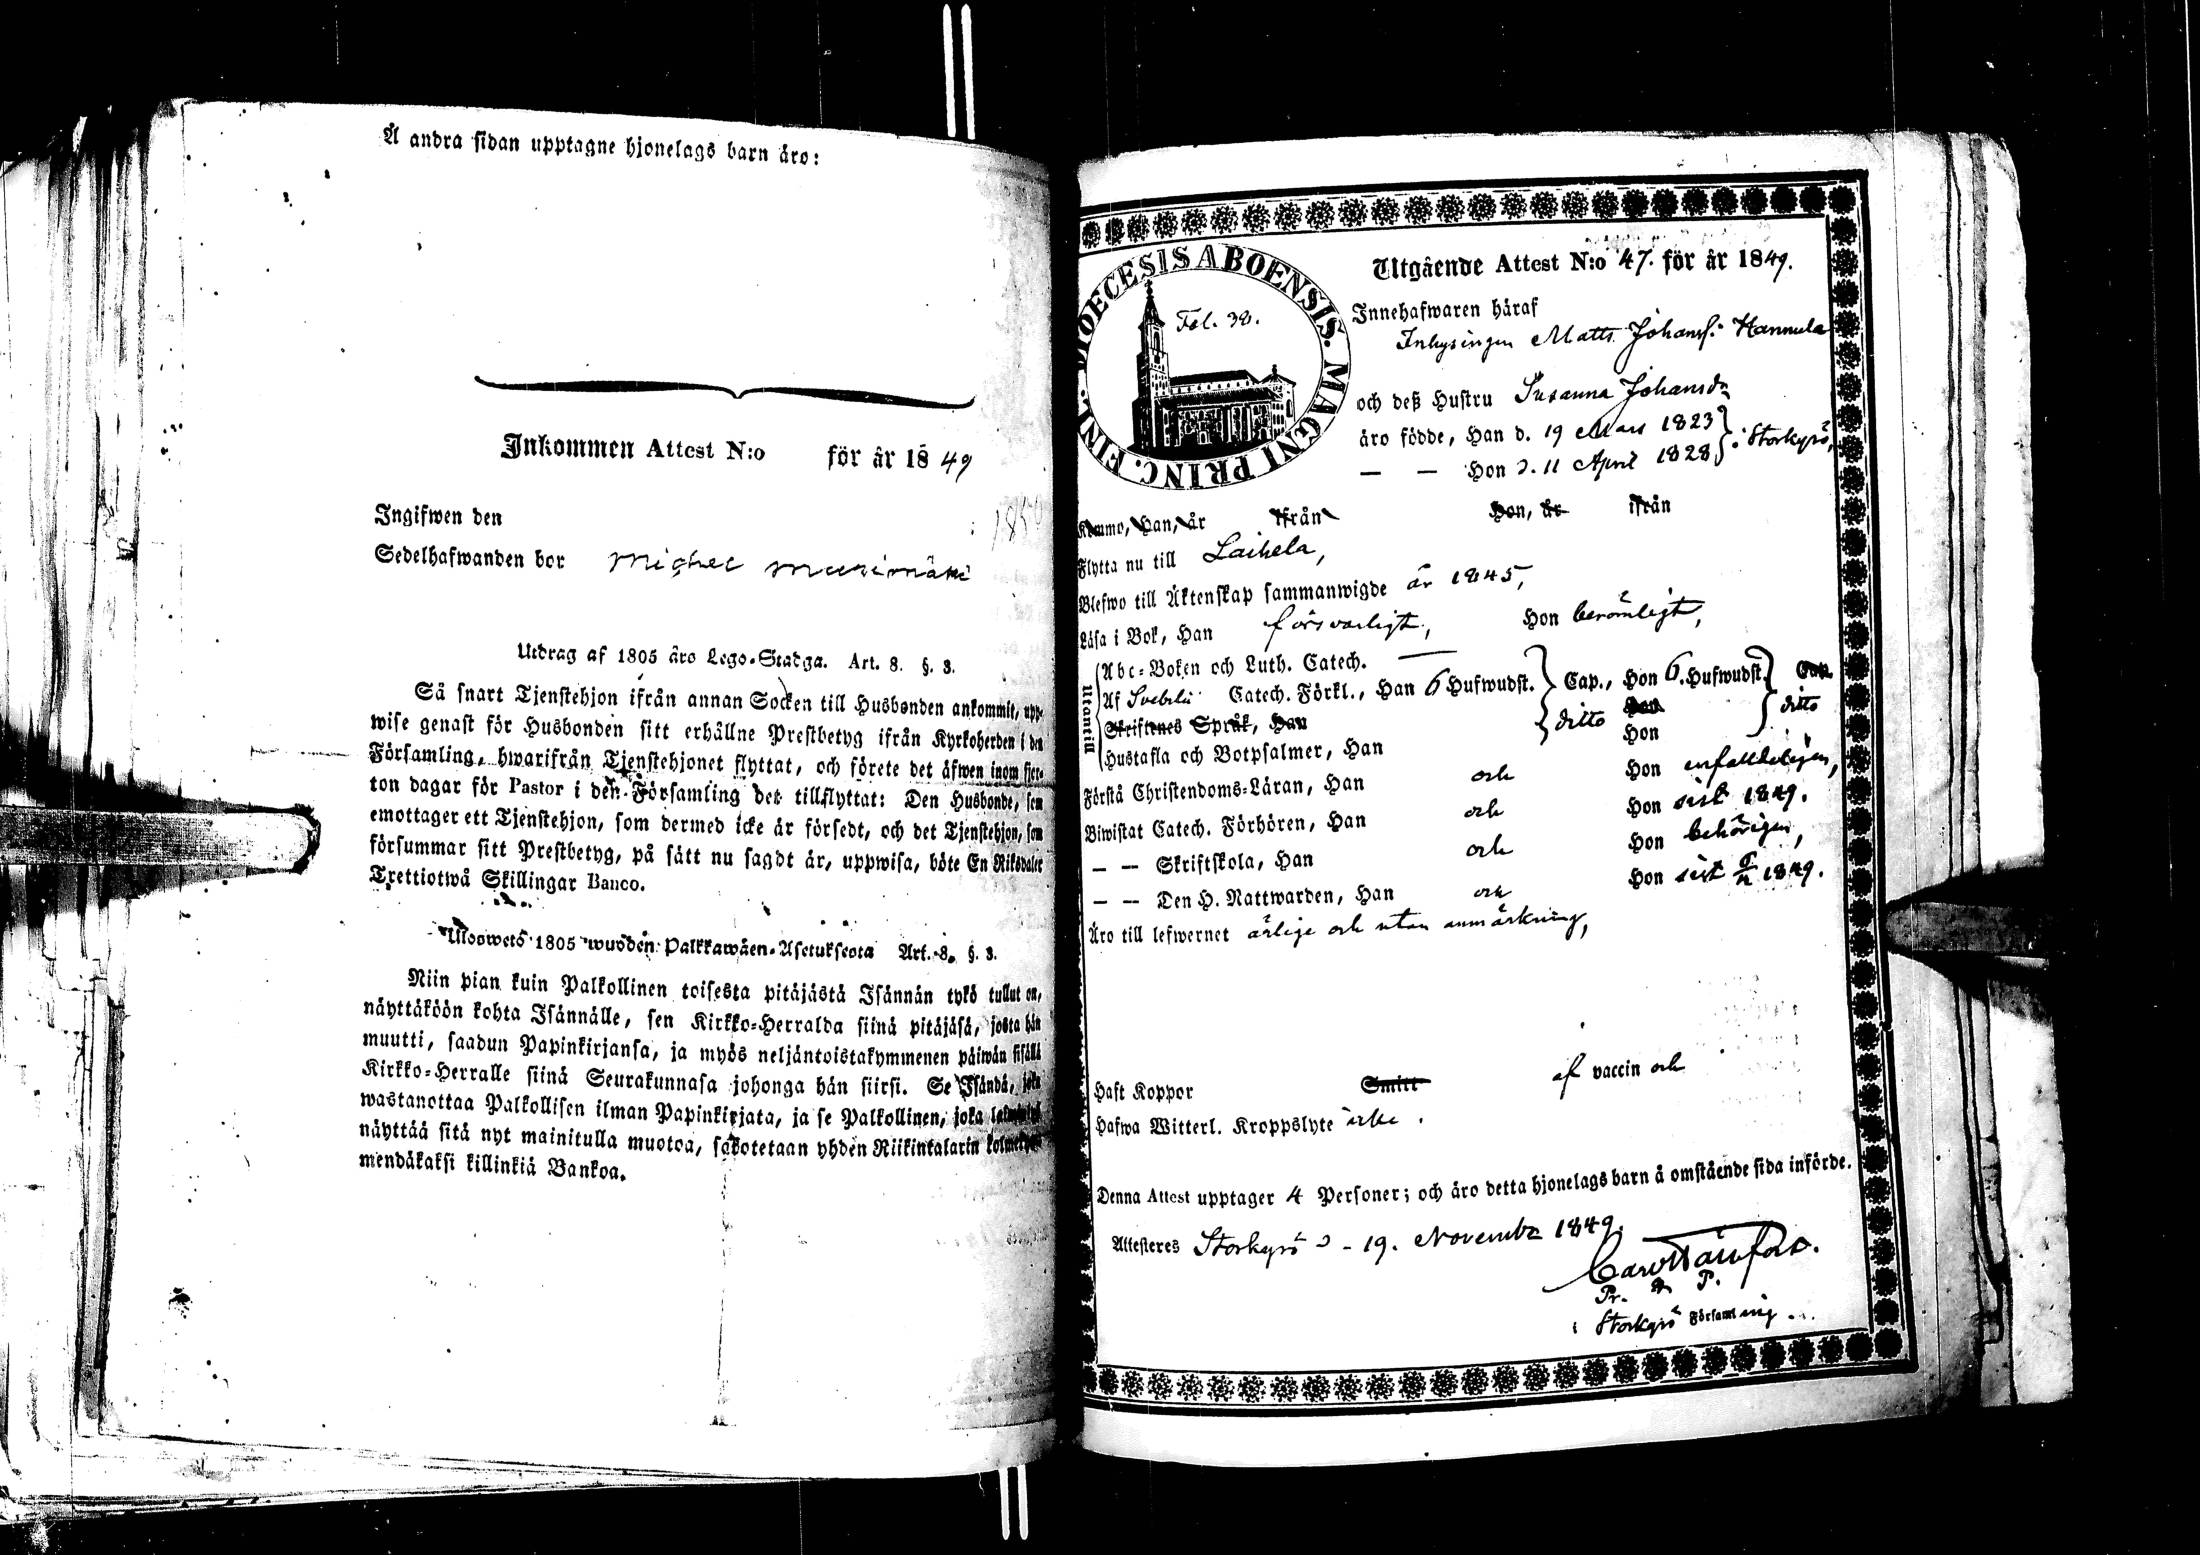 Å andra sidan upptagne hjonelags barn äro:
Inkommen Attest N:o för år 1849
Ingifwen den
Sedelhafwanden bor Michel
Utdrag af 1805 års Lego-Stadga. Art. 8. §. 3.
Så snart Tjenstehjon ifrån annan Socken till Husbonden ankommit, upp-
wise genast för Husbonden sitt erhållne Prestbetyg ifrån Kyrkoherden i den
Församling, hwarifrån Tjenstehjonet flyttat, och förete det äfwen inom fjor-
ton dagar för Pastor i den Församling det tillflyttat: Den Husbonde, som
emottager ett Tjenstehjon, som dermed icke är försedt, och det Tjenstehjon, som
försummar sitt Prestbetyg, på sätt nu sagdt är, uppwisa, böte En Riksdaler
Trettiotwå Skillingar Banco.
Uloswets 1805 wuoden Palkkawäen-Asetuksesta Art. 8. §. 3.
Niin pian kuin Palkollinen toisesta pitäjästä Isännän tykö tullut on,
näyttäköön kohta Isännälle, sen Kirkko-Herralda siinä pitäjäsä, josta hän
muutti, saadun Papinkirjansa, ja myös neljäntoistakymmenen päiwän sisällä
Kirkko-Herralle siinä Seurakunnasa johonga hän siirsi. Se Isändä, joka
wastanottaa Palkollisen ilman Papinkirjata, ja se Palkollinen, joka
näyttää sitä nyt mainitulla muotoa, sakotetaan yhden Riikintalarin kolmekym-
mendäkaksi killinkiä Bankoa.
DIOECESIS ABOENSIS. MAGNI PRINC. FINL.
Fol. 38.
Utgående Attest N:o 47. för år 1849.
Innehafwaren häraf
Inhysingen Matts Johanss: Hannula
och deß Hustru Susanna Johansdr
äro födde, Han d. 19 Mars 1823 } i Storkyrö,
— — Hon d. 11 April 1828
Kommo, Han, år ifrån Hon, år ifrån
Flytta nu till Laihela,
Blefwo till Äktenskap sammanwigde år 1845,
Läsa i Bok, Han försvarligt, Hon berömligt,
Utantill
Abc-Boken och Luth. Catech. —
Af Svebelii Catech. Förkl., Han 6 Hufwudst. } Cap., Hon 6. Hufwudst. } Cap.
Skriftenes Språk, Han ditto Hon ditto
Hustafla och Botpsalmer, Han Hon
Förstå Christendoms-Läran, Han och Hon enfaldeligen,
Biwistat Catech. Förhören, Han och Hon sist 1849.
— — Skriftskola, Han och Hon behörigen,
— — Den H. Nattwarden, Han och Hon sist 1849.
Äro till lefwernet ärlige och utan anmärkning,
Haft Koppor Smitt af vaccin och
Hafwa Witterl. Kroppslyte icke.
Denna Attest upptager 4 Personer; och äro detta hjonelags barn å omstående sida införde.
Attesteres Storkyrö d - 19. November 1849.
i Storkyrö Församling